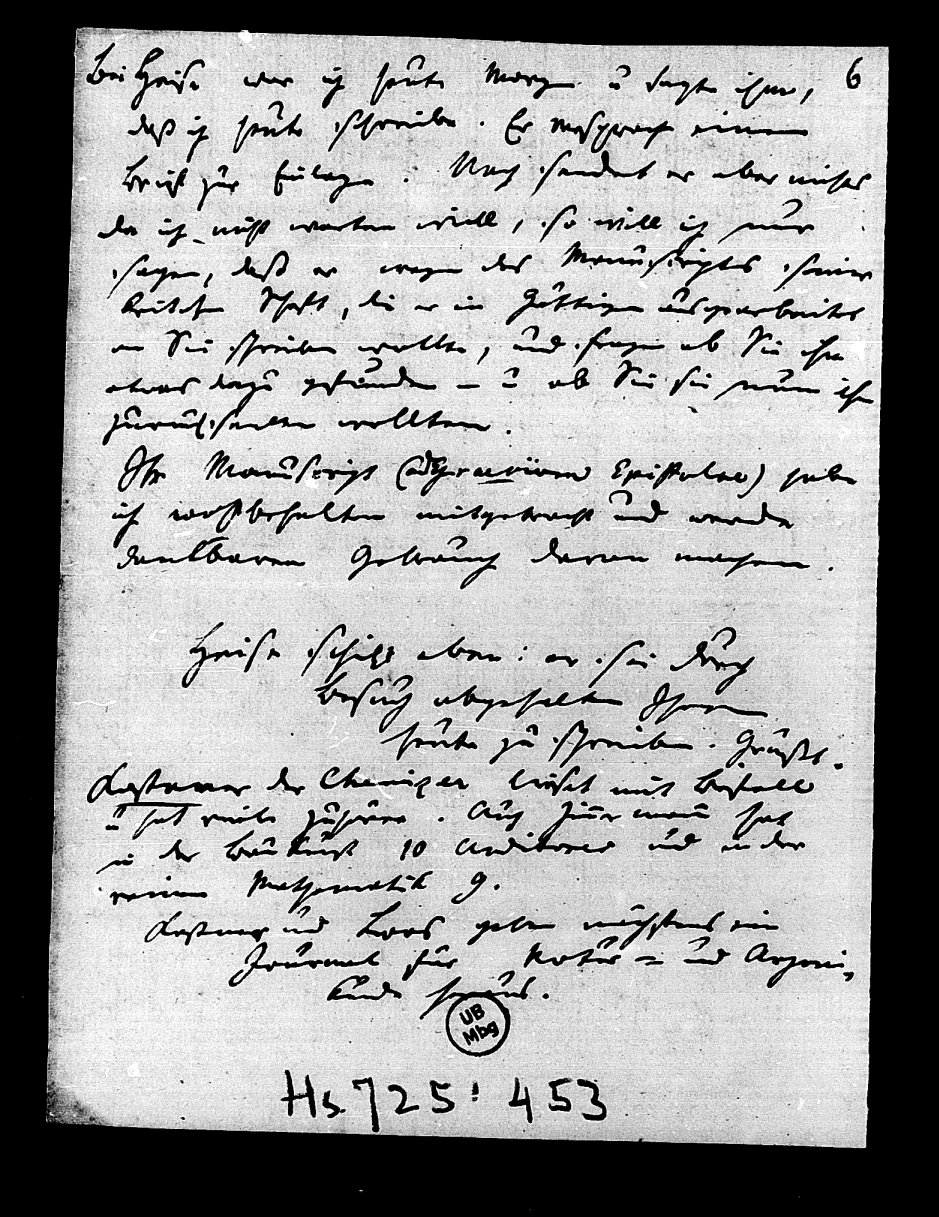 Bei Heise war ich heute Morgen u sagte ihm, 6
daß ich heute schreibe. Er versprach einen
Brief zur Einlage. Noch sendet er aber nichts
da ich nicht warten will, so will ich nur
sagen, daß er wegen des Manuscriptes seiner
kritischen Schrift, die er in Göttingen ausgearbeitet
an Sie schreiben wollte, und fragen ob Sie ihm
etwas dazu gefunden – u ob Sie sie nun ihm
zurücksenden wollten.
Ihr Manuscript (ad Epistolae) habe
ich wohlbehalten mitgebracht und werde
dankbaren Gebrauch davon machen.
Heise schickt eben: er sei durch
Besuch abgehalten Ihnen
heute zu schreiben. Grüßt.
Kastner der Chemiker lieset mit Beifall
u hat viele Zuhörer. Auch hat
in der Baukunst 10 Auditores und in der
reinen Mathematik 9.
Kastner und Loos geben nächstens ein
Journal für Natur- und Arznei-
kunde heraus.
UB
Mbg
Hs. 725: 453